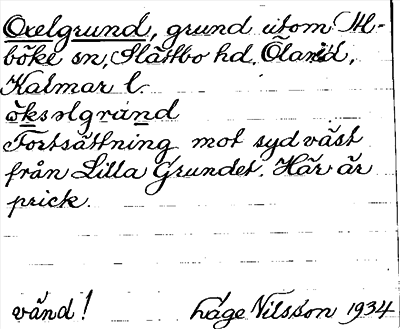 Oxelgrund, grund utom Al-
böke sn, Slättbo hd, Öland,
Kalmar l.
öksəlgránd
Fortsättning mot sydväst
från Lilla Grundet. Här är
prick.
vänd! Låge Nilsson 1934